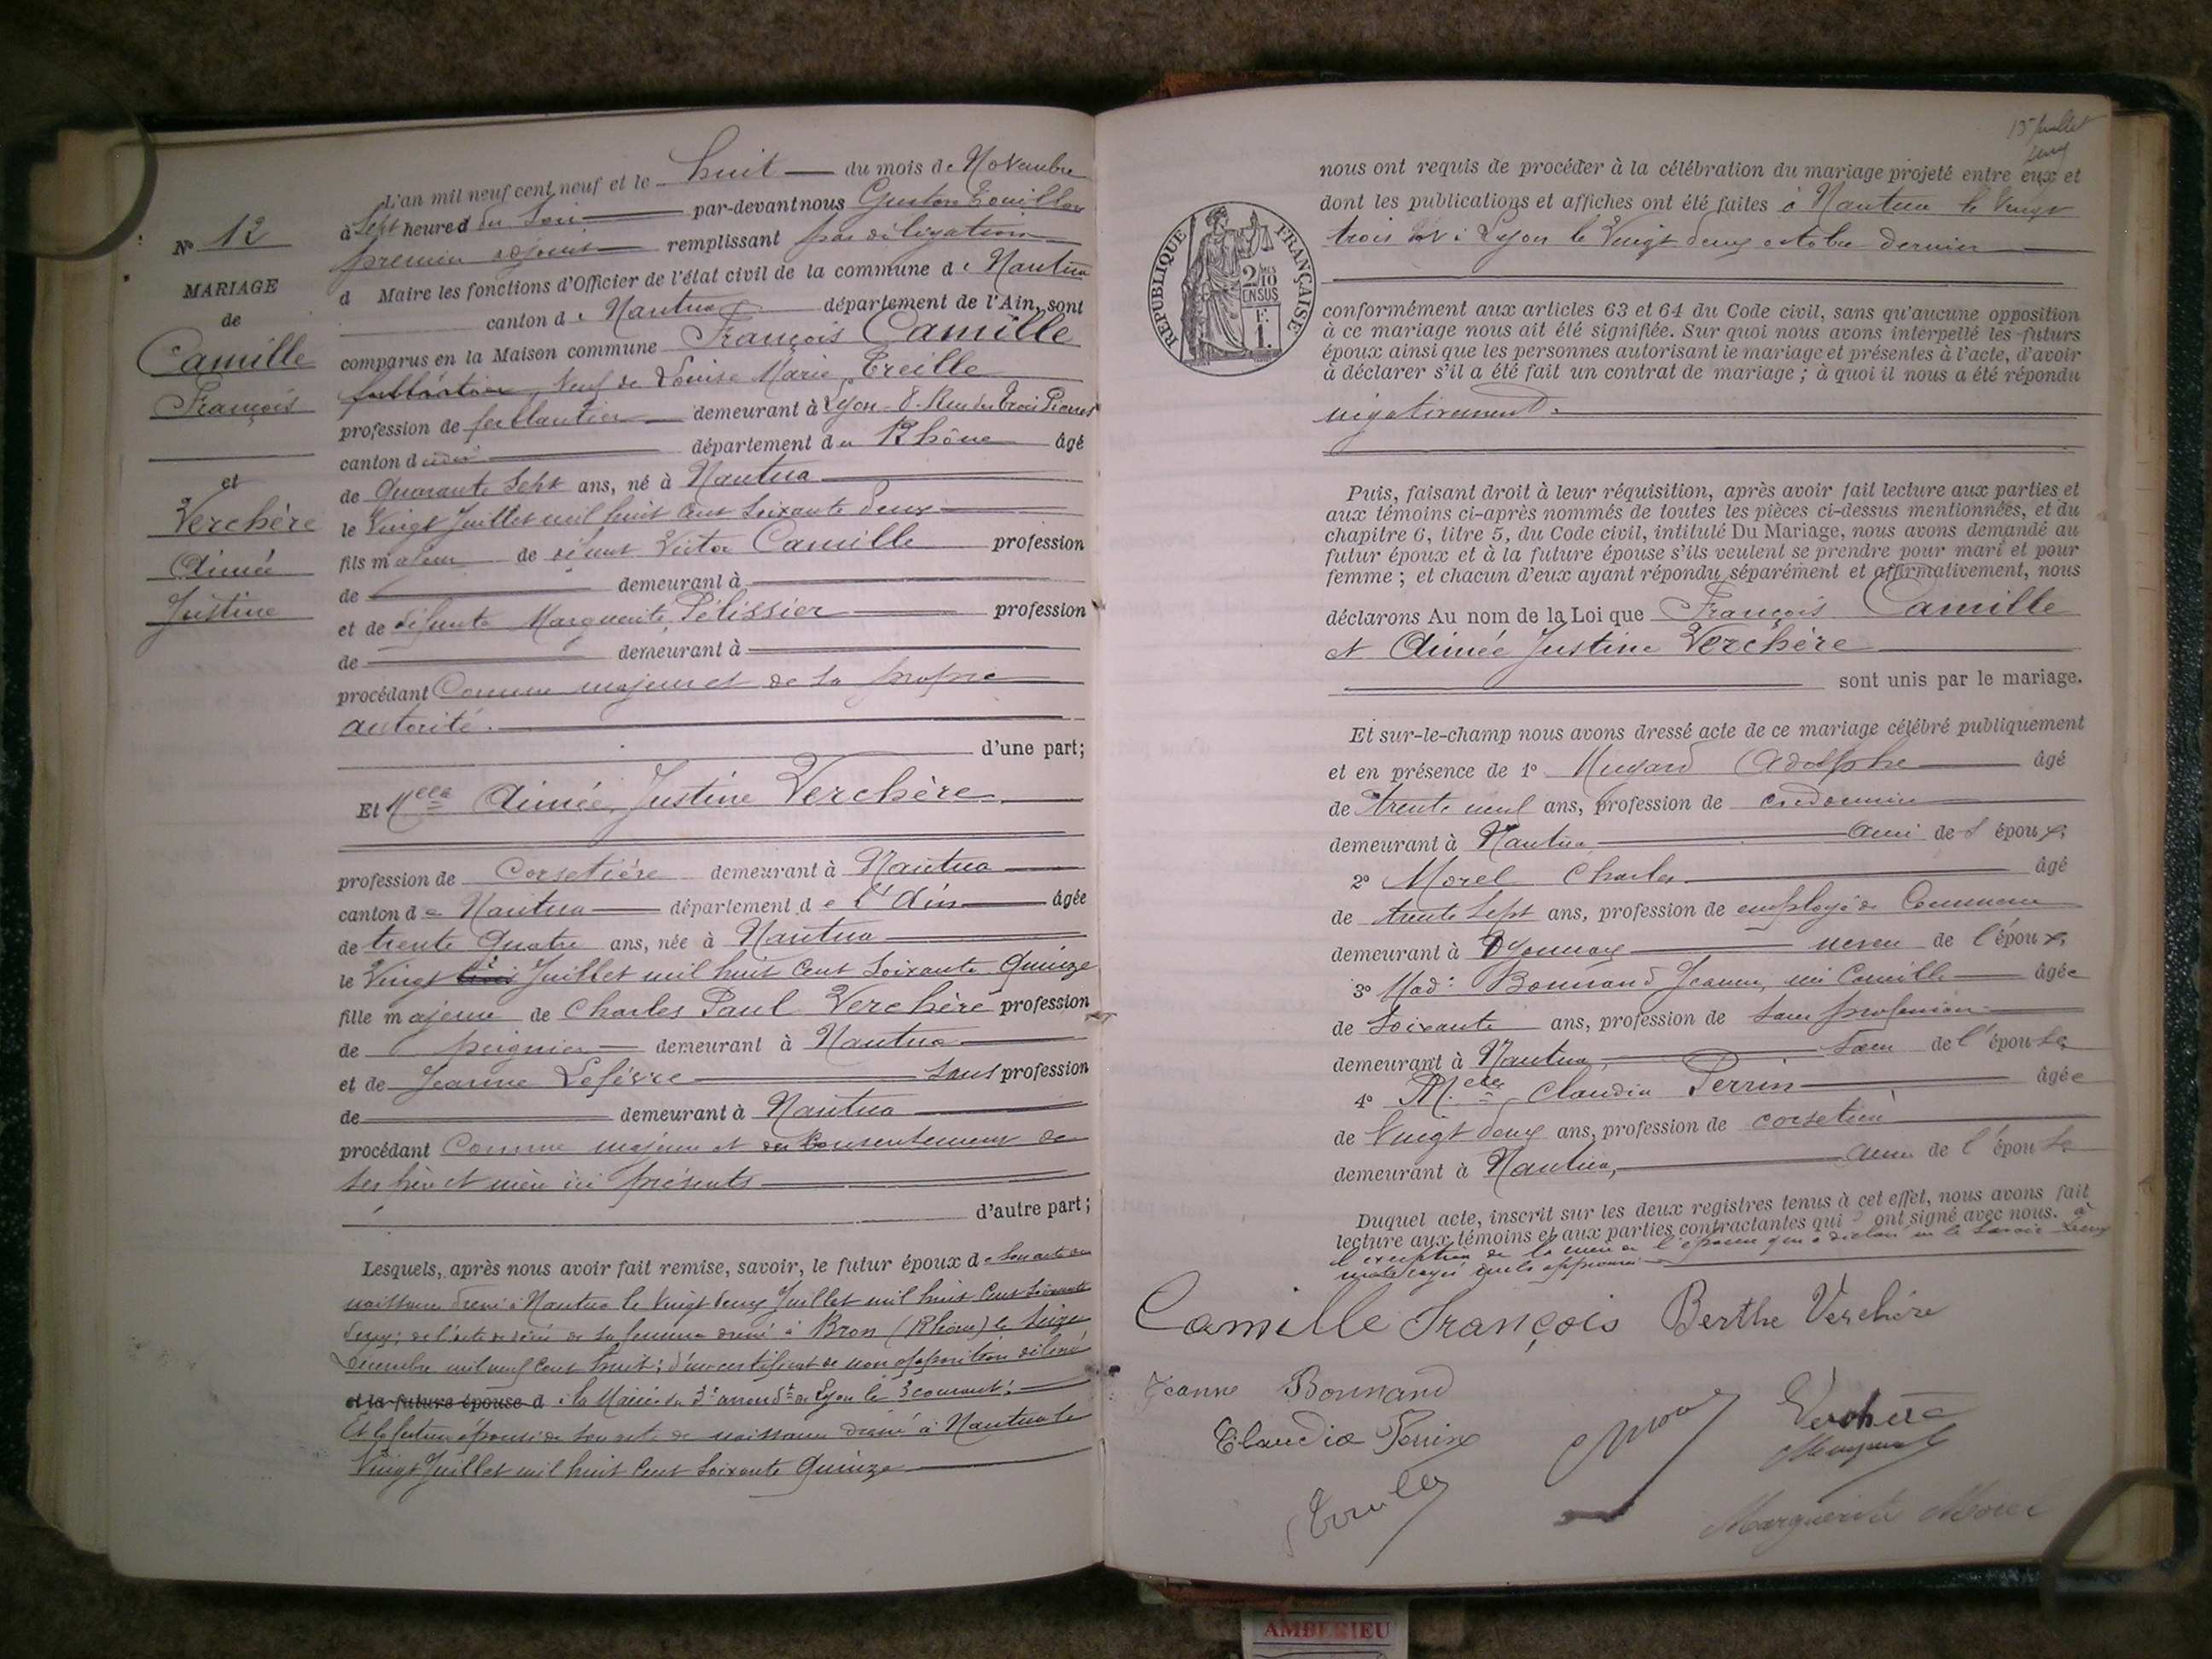 N° 12
MARIAGE
de
Camille
François
et
Verchère
Aimée
Justine
L'an mil neuf cent neuf et le huit du mois de Novembre
à Sept heures du Soir par-devant nous Gustave
premier adjoint remplissant par délégation
d Maire les fonctions d'Officier de l'état civil de la commune de Nantua
canton de Nantua département de l'Ain, sont
comparus en la Maison commune François Camille
ferblantier, Veuf de Louise Marie Treille
profession de ferblantier demeurant à Lyon 8 Rue des Trois Pierres
canton dudit département du Rhône âgé
de Quarante Sept ans, né à Nantua
le Vingt Juillet mil huit Cent Soixante Deux
fils majeur de défunt Victor Camille profession
de demeurant à
et de défunte Marguerite Pélissier profession
de demeurant à
procédant Comme majeur et de sa propre
autorité.
d'une part;
Et Melle Aimée Justine Verchère
profession de Corsetière demeurant à Nantua
canton de Nantua département de l'Ain âgée
de trente Quatre ans, née à Nantua
le Vingt Juillet mil huit Cent Soixante Quinze
fille majeure de Charles Paul Verchère profession
de peignier demeurant à Nantua
et de Jeanne Lefèvre sans profession
de demeurant à Nantua
procédant Comme majeure et du Consentement de
ses père et mère ici présents
d'autre part;
Lesquels, après nous avoir fait remise, savoir, le futur époux de son acte de
naissance dressé à Nantua le Vingt deux Juillet mil huit Cent Soixante
Deux; de l'acte de décès de sa femme dressé à Bron (Rhône) le Seize
Décembre mil neuf Cent huit; d'un certificat de non opposition délivré
et la future épouse d à la Mairie du 3e arrondt de Lyon le 3 courant.
Et la future épouse de son acte de naissance dressé à Nantua le
Vingt Juillet mil huit Cent Soixante Quinze
nous ont requis de procéder à la célébration du mariage projeté entre eux et
dont les publications et affiches ont été faites à Nantua le Vingt
trois et à Lyon le Vingt deux octobre dernier
RÉPUBLIQUE FRANÇAISE
2/10
EN SUS
conformément aux articles 63 et 64 du Code civil, sans qu'aucune opposition
à ce mariage nous ait été signifiée. Sur quoi nous avons interpellé les futurs
époux ainsi que les personnes autorisant le mariage et présentes à l'acte, d'avoir
à déclarer s'il a été fait un contrat de mariage; à quoi il nous a été répondu
négativement.
Puis, faisant droit à leur réquisition, après avoir fait lecture aux parties et
aux témoins ci-après nommés de toutes les pièces ci-dessus mentionnées, et du
chapitre 6, titre 5, du Code civil, intitulé Du Mariage, nous avons demandé au
futur époux et à la future épouse s'ils veulent se prendre pour mari et pour
femme; et chacun d'eux ayant répondu séparément et affirmativement, nous
déclarons Au nom de la Loi que François Camille
et Aimée Justine Verchère
sont unis par le mariage.
Et sur-le-champ nous avons dressé acte de ce mariage célébré publiquement
et en présence de 1° Adolphe âgé
de trente neuf ans, profession de cordonnier
demeurant à Nantua ami de l'époux,
2° Morel Charles âgé
de trente Sept ans, profession de employé de Commerce
demeurant à Oyonnax neveu de l'époux,
3° Mad: Bonnand Jeanne, née Camille âgée
de Soixante ans, profession de sans profession
demeurant à Nantua, Sœur de l'épouse
4° Melle Claudia Perrin âgée
de Vingt deux ans, profession de corsetière
demeurant à Nantua, amie de l'épouse
Duquel acte, inscrit sur les deux registres tenus à cet effet, nous avons fait
lecture aux témoins et aux parties contractantes qui ont signé avec nous. à
l'exception de la mère de l'épouse qui a déclaré ne le savoir
Camille François Berthe Verchère
Jeanne Bonnand
Verchère
Claudia Perrin
Marguerite Morel
AMBERIEU